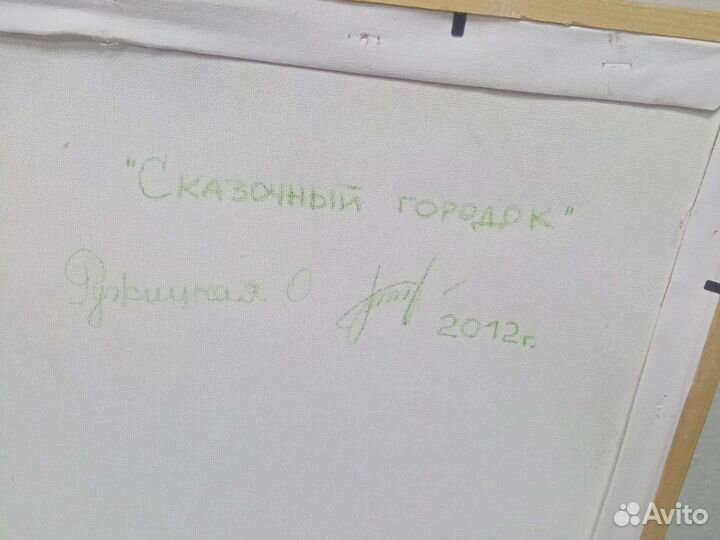 "Сказочный городок"
Ружицкая О.
2012г.
Avito